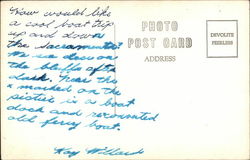 How would like
a cool boat trip
up and down
the Sacramento?
the bluffs after
dark. Near the
x marked on the
is a boat
dock and renovated
old ferry boat.
Kay
PHOTO
POST CARD
ADDRESS
DEVOLITE
PEERLESS